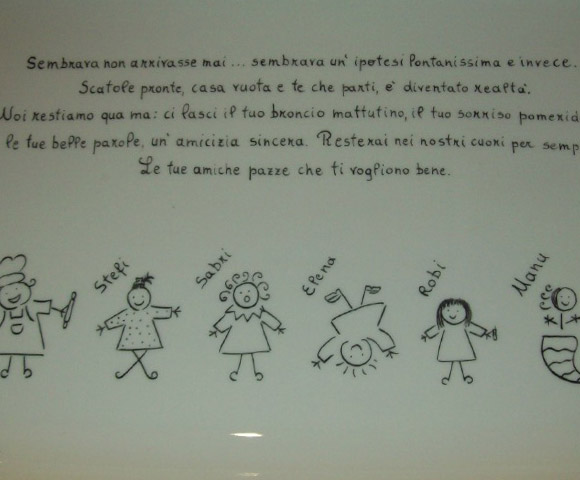 Sembrava non arrivasse mai ... sembrava un' ipotesi lontanissima e invece.
Scatole pronte, casa vuota e te che parti, e' diventato realta'.
Noi restiamo qua ma: ci lasci il tuo broncio mattutino, il tuo sorriso pomerid
le tue belle parole, un' amicizia sincera. Resterai nei nostri cuori per semp
Le tue amiche pazze che ti vogliono bene.
Stefi
Sabri
Elena
Robi
Manu